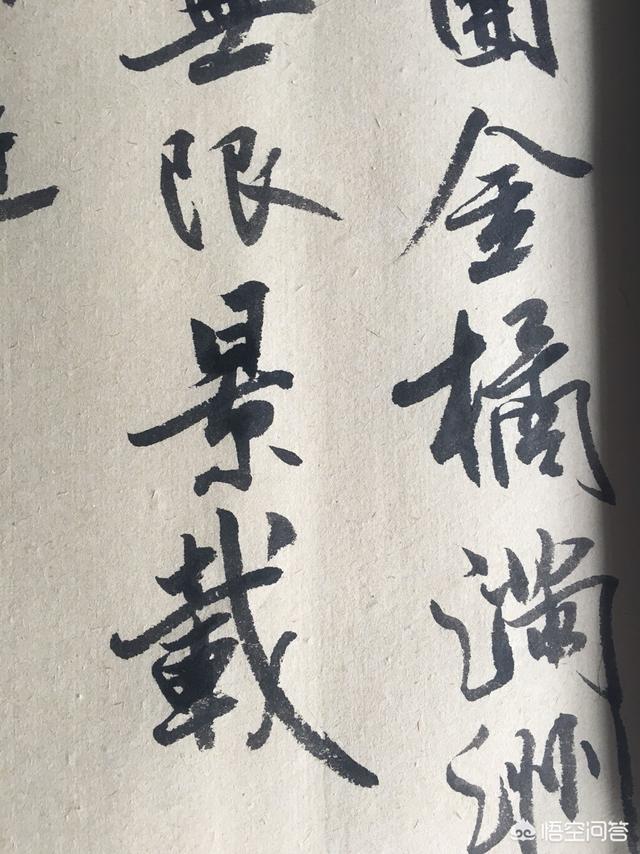 團金橘滿洲
無限景載
悟空问答